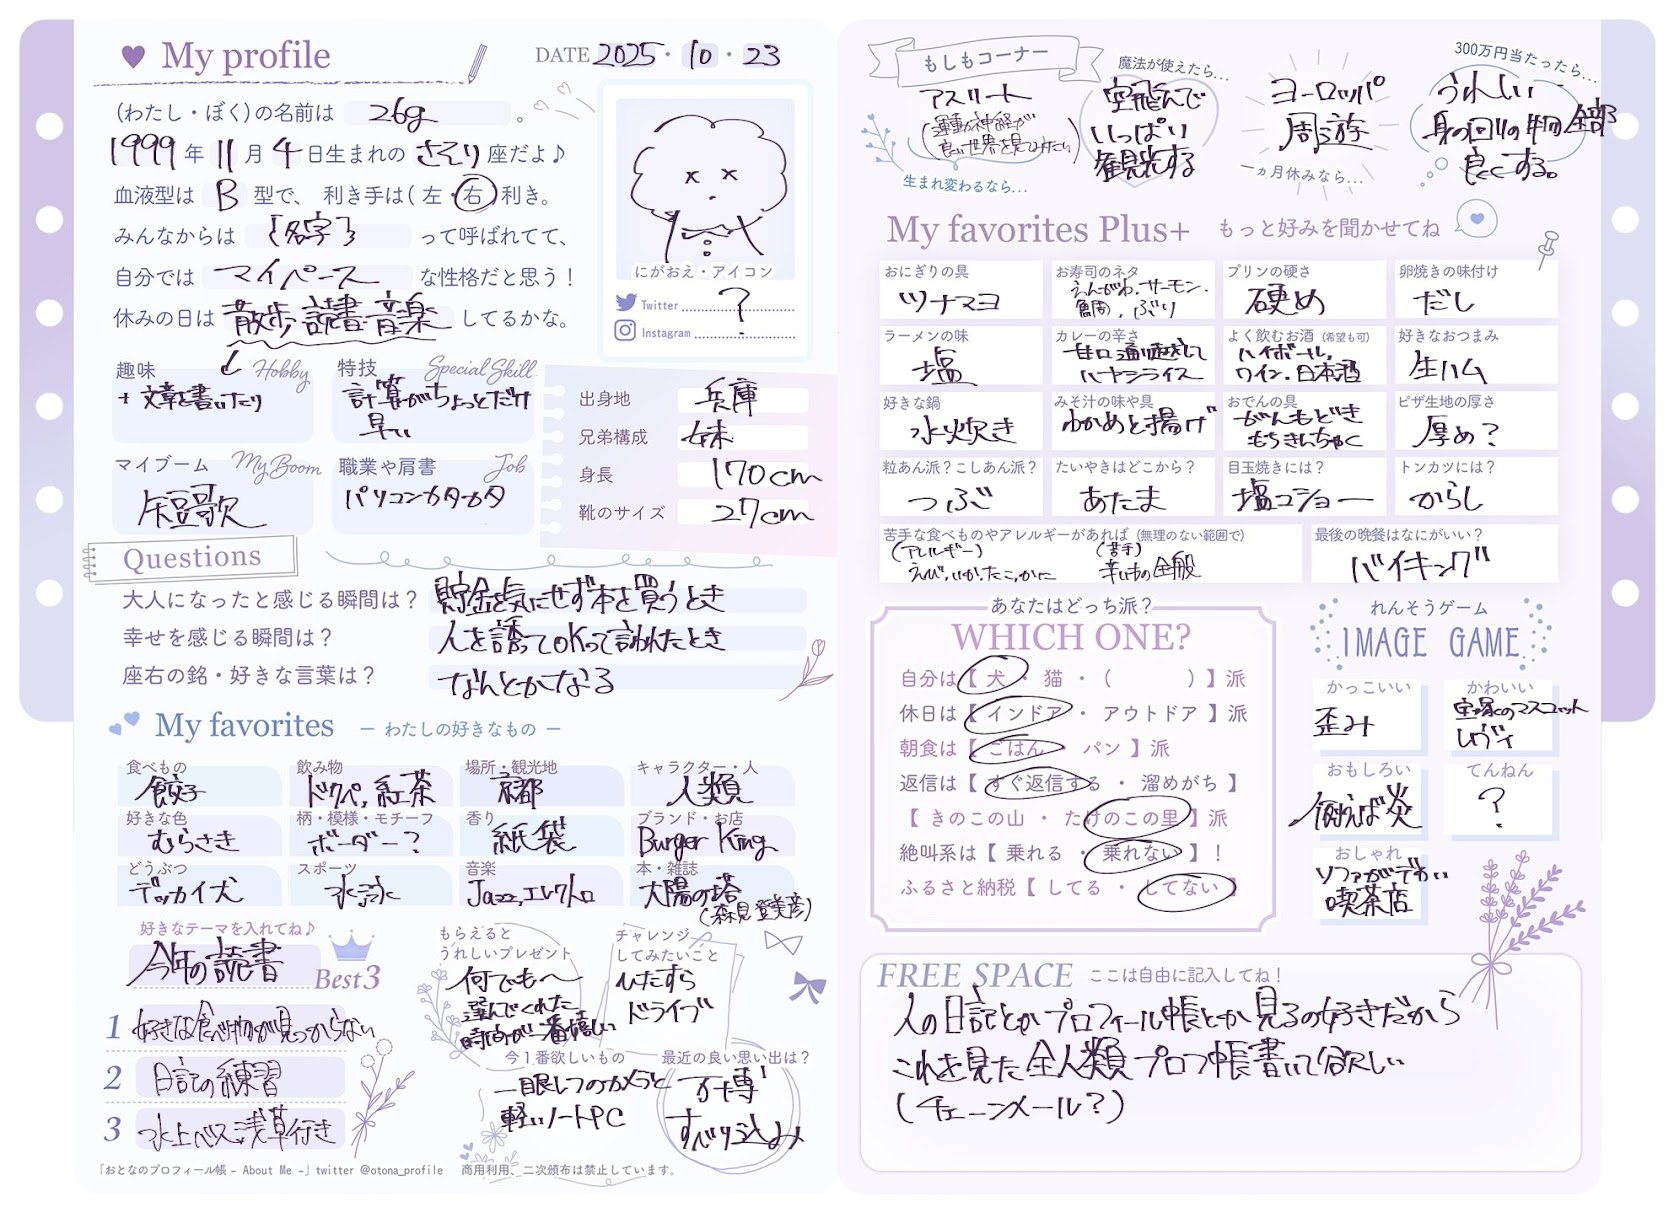 My profile
DATE 2025・10・23
(わたし・ぼく)の名前は 26g 。
1999年 11月 4日生まれの さそり座だよ♪
血液型は B 型で、 利き手は(左・右)利き。
みんなからは {名字} って呼ばれてて、
自分では マイペース な性格だと思う!
休みの日は 散歩,読書,音楽 してるかな。
にがおえ・アイコン
Twitter ?
Instagram ?
趣味 Hobby
+ 文章を書いたり
特技 Special Skill
計算がちょっとだけ
早い
マイブーム My Boom
短歌
職業や肩書 Job
パソコンカタカタ
出身地 兵庫
兄弟構成 妹
身長 170cm
靴のサイズ 27cm
Questions
大人になったと感じる瞬間は? 貯金を気にせず本を買うとき
幸せを感じる瞬間は? 人を誘ってOKって言われたとき
座右の銘・好きな言葉は? なんとかなる
My favorites ― わたしの好きなもの ―
食べもの 餃子
飲み物 ドクペ,紅茶
場所・観光地 京都
キャラクター・人 人類
好きな色 むらさき
柄・模様・モチーフ ボーダー?
香り 紙袋
ブランド・お店 Burger King
どうぶつ デッカイ犬
スポーツ 水泳
音楽 Jazz,エレクトロ
本・雑誌 太陽の塔
(森見登美彦)
好きなテーマを入れてね♪
今年の読書
Best3
1 好きな食べ物が見つからない
2 日記の練習
3 水上バス浅草行き
もらえると
うれしいプレゼント
何でも〜
選んでくれた
時間が一番嬉しい
チャレンジ
してみたいこと
ひたすら
ドライブ
今1番欲しいもの
一眼レフのカメラと
軽いノートPC
最近の良い思い出は?
万博
すべり込み
「おとなのプロフィール帳 - About Me -」twitter @otona_profile 商用利用、二次頒布は禁止しています。
もしもコーナー
アスリート
(運動神経が
良い世界を見てみたい)
生まれ変わるなら...
魔法が使えたら...
空飛んで
いっぱい
観光する
ヨーロッパ
周遊
一ヵ月休みなら...
300万円当たったら...
うれしい
身の回りの物全部
良くする。
My favorites Plus+ もっと好みを聞かせてね
おにぎりの具 ツナマヨ
お寿司のネタ
えんがわ.サーモン.
鯛.ぶり
プリンの硬さ 硬め
卵焼きの味付け だし
ラーメンの味 塩
カレーの辛さ
甘口通り越して
ハヤシライス
よく飲むお酒 (希望も可)
ハイボール,
ワイン.日本酒
好きなおつまみ 生ハム
好きな鍋 水炊き
みそ汁の味や具 わかめと揚げ
おでんの具
がんもどき
もちきんちゃく
ピザ生地の厚さ 厚め?
粒あん派?こしあん派? つぶ
たいやきはどこから? あたま
目玉焼きには? 塩コショー
トンカツには? からし
苦手な食べものやアレルギーがあれば (無理のない範囲で)
(アレルギー) (苦手)
えび,いか.たこ.かに 辛いもの全般
最後の晩餐はなにがいい?
バイキング
あなたはどっち派?
WHICH ONE?
自分は【 犬 ・ 猫 ・ ( ) 】派
休日は【 インドア ・ アウトドア 】派
朝食は【 ごはん ・ パン 】派
返信は【 すぐ返信する ・ 溜めがち 】
【 きのこの山 ・ たけのこの里 】派
絶叫系は【 乗れる ・ 乗れない 】!
ふるさと納税【 してる ・ してない 】
れんそうゲーム
IMAGE GAME
かっこいい
歪み
かわいい
宝塚のマスコット
レヴィ
おもしろい
例えば炎
てんねん
?
おしゃれ
ソファがでかい
喫茶店
FREE SPACE ここは自由に記入してね!
人の日記とかプロフィール帳とか見るの好きだから
これを見た全人類プロフ帳書いて欲しい
(チェーンメール?)